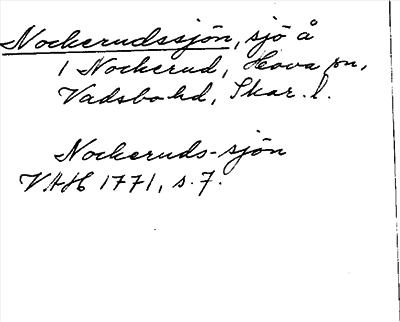 Nockerudssjön, sjö å
1 Nockerud, Hova sn,
Vadsbo hd, Skar. l.
Nockeruds-sjön
VAH 1771, s. 7.